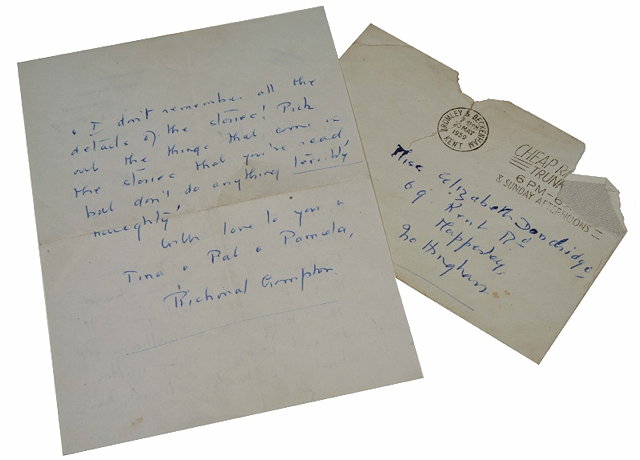 . I don't remember all the
details of the stories! Pick
out the things that come in
the stories that you've read,
but don't do anything terribly
naughty!
With love to you &
Tina & Pat & Pamela,
Richmal Crompton.
BROMLEY & BECKENHAM
MAY
1959
KENT
CHEAP RA
TRUNK
6 PM-6
& SUNDAY AFTERNOONS
Miss Elizabeth Dandridge,
69 Kent Rd
Mapperley,
Nottingham